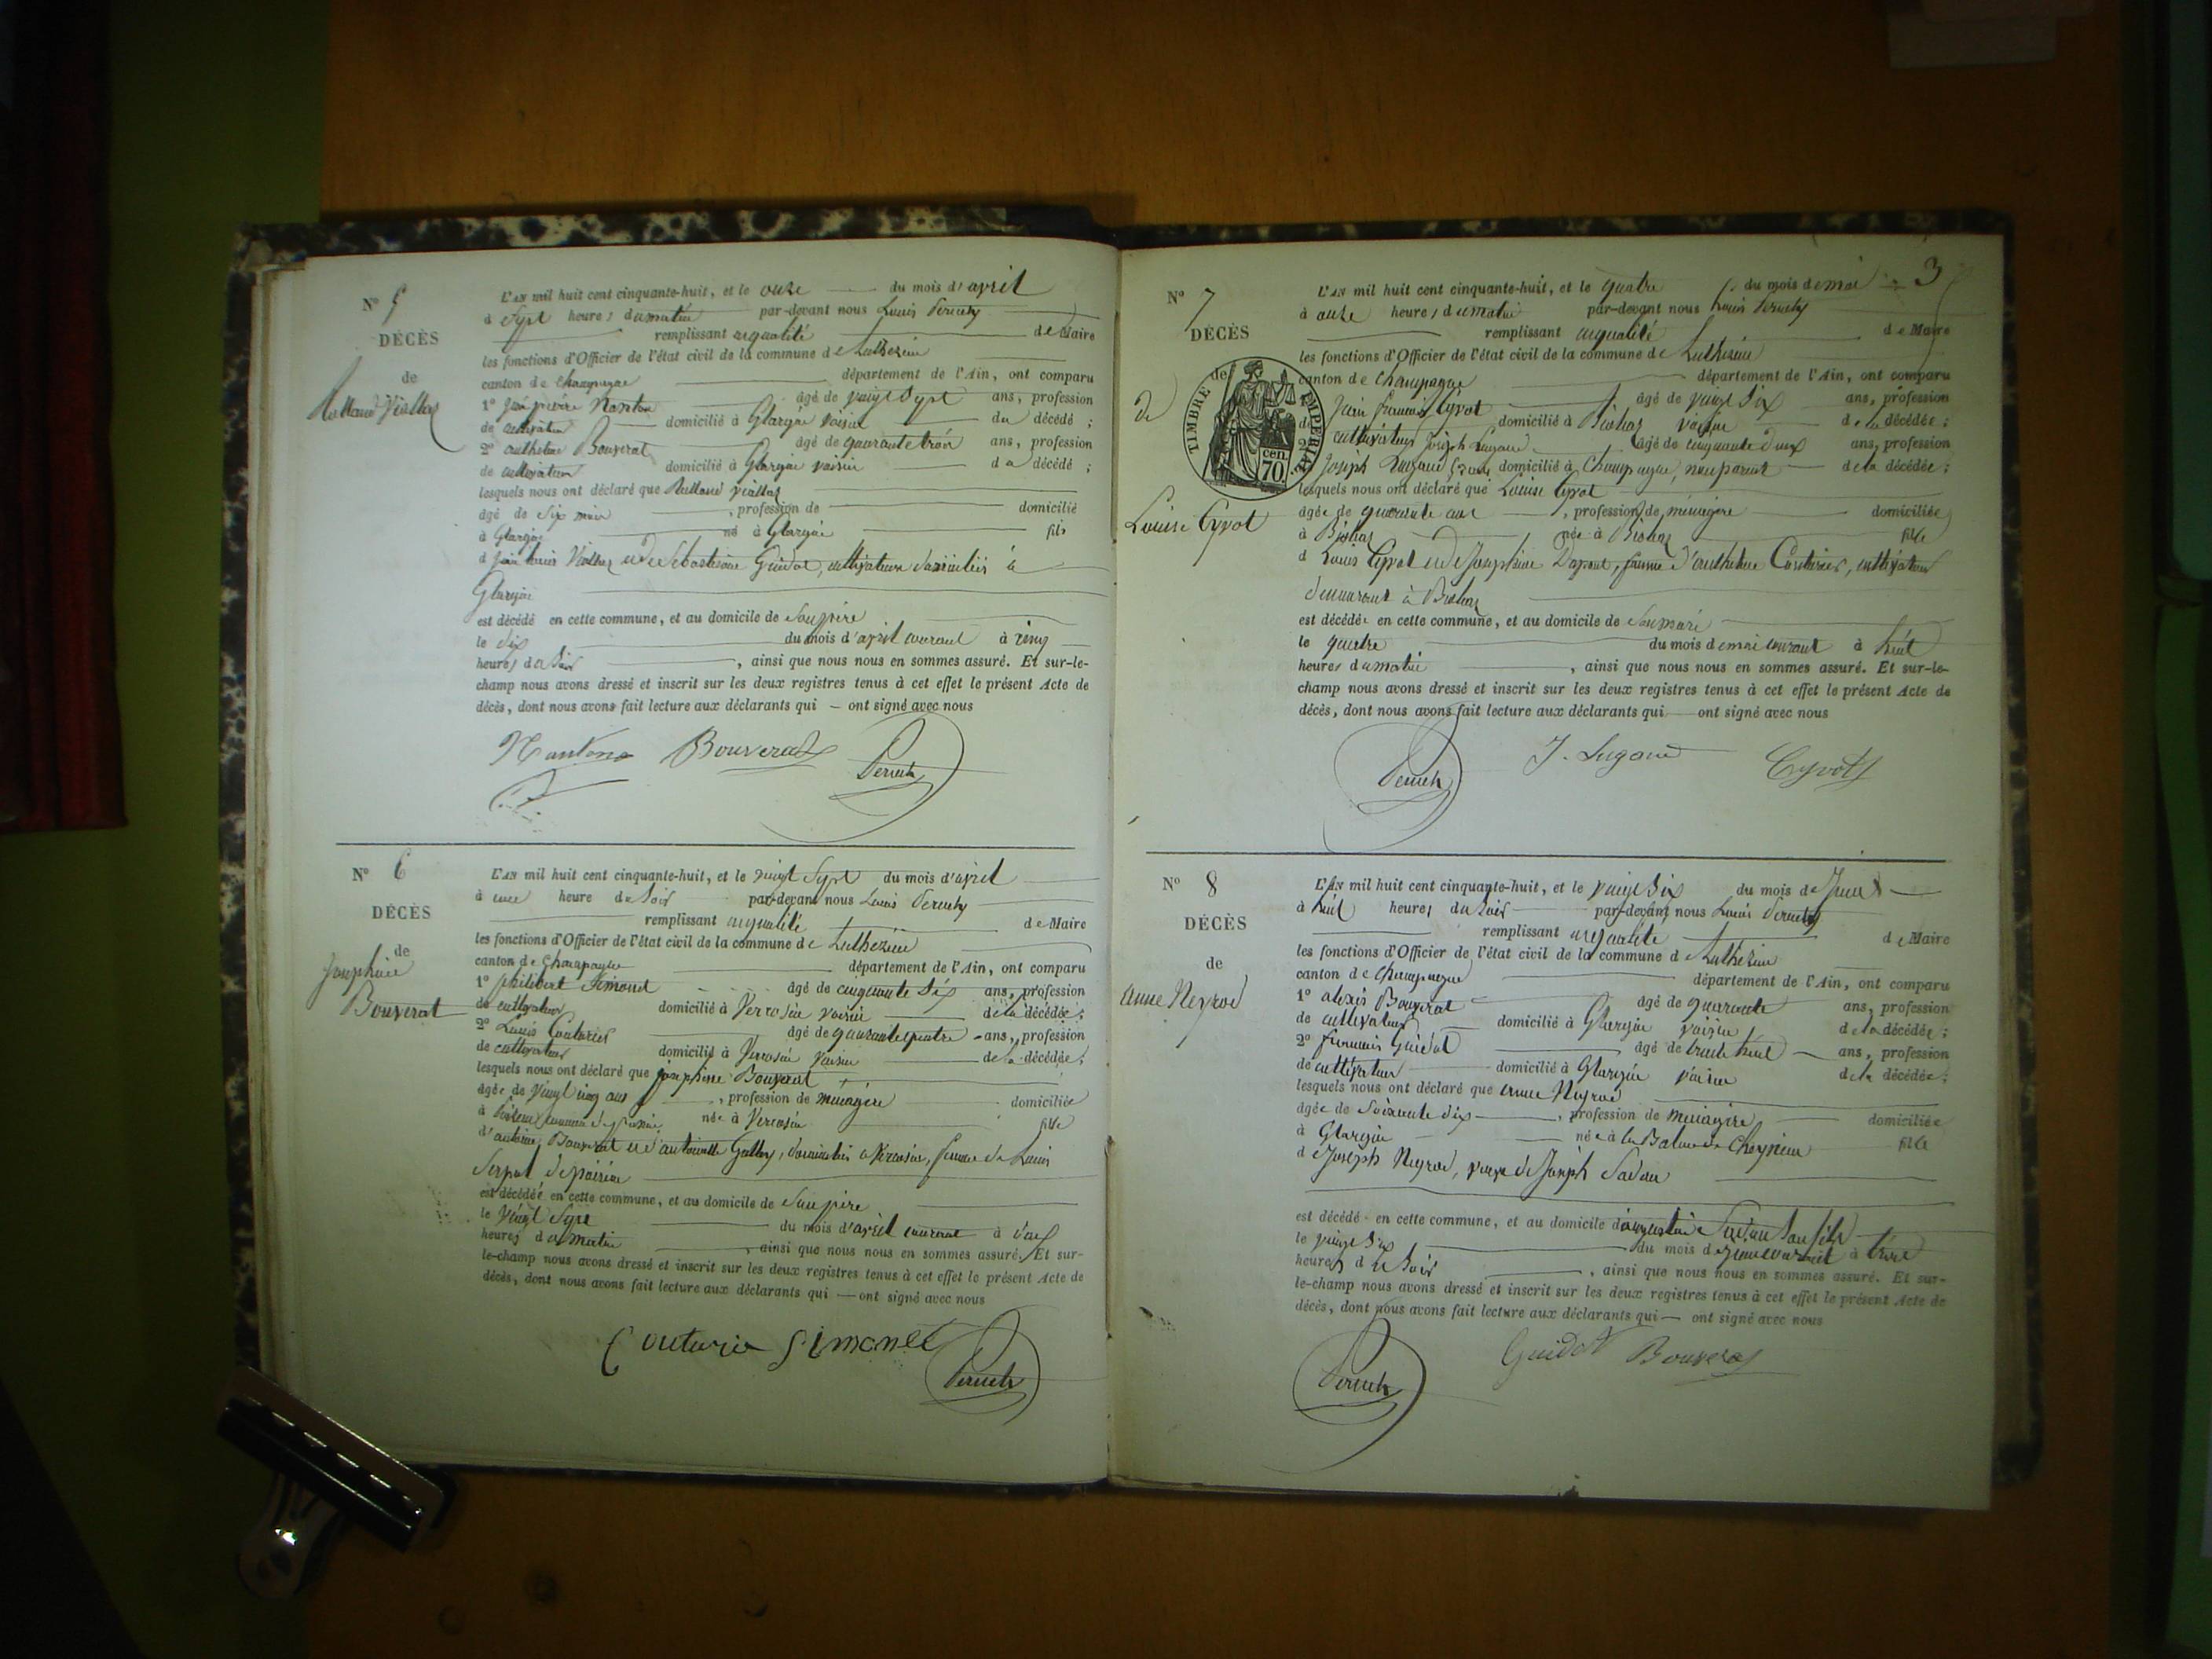 N° 5
DÉCÈS
de
Rolland Viallet
L'AN mil huit cent cinquante-huit, et le onze du mois d'avril
à Sept heures du matin par-devant nous Louis Peruch
remplissant en qualité de Maire
les fonctions d'Officier de l'état civil de la commune de Luthézieu
canton de Champagne département de l'Ain, ont comparu
1° Jean pierre Nanton âgé de vingt Sept ans, profession
de cultivateur domicilié à voisin du décédé ;
2° anthelme Bouverat âgé de quarante trois ans, profession
de cultivateur domicilié à voisin du décédé ;
lesquels nous ont déclaré que Rolland
âgé de Six mois , profession de domicilié
à né à fils
d Jean Louis et de Sébastienne Guidot, cultivateurs domiciliés à
est décédé en cette commune, et au domicile de Son père
le dix du mois d'avril courant à cinq
heures du Soir , ainsi que nous nous en sommes assuré. Et sur-le-
champ nous avons dressé et inscrit sur les deux registres tenus à cet effet le présent Acte de
décès, dont nous avons fait lecture aux déclarants qui — ont signé avec nous
Nanton Bouverat Peruch
N° 6
DÉCÈS
de
Josephine
Bouverat
L'AN mil huit cent cinquante-huit, et le vingt Sept du mois d'avril
à une heure du Soir par-devant nous Louis Peruch
remplissant en qualité de Maire
les fonctions d'Officier de l'état civil de la commune de Luthézieu
canton de Champagne département de l'Ain, ont comparu
1° philibert Simonet âgé de cinquante Six ans, profession
de cultivateur domicilié à Vercosin voisin de la décédée ;
2° Louis Couturier âgé de quarante quatre ans, profession
de cultivateur domicilié à Vercosin voisin de la décédée ;
lesquels nous ont déclaré que Josephine Bouverat
âgée de Vingt cinq ans , profession de ménagère domiciliée
à née à Vercosin fille
d'antoine Bouverat et d'antoinette domiciliés à Vercosin, femme de Louis
est décédée en cette commune, et au domicile de Son père
le vingt Sept du mois d'avril courant à
heures du Matin , ainsi que nous nous en sommes assuré. Et sur-
le-champ nous avons dressé et inscrit sur les deux registres tenus à cet effet le présent Acte de
décès, dont nous avons fait lecture aux déclarants qui — ont signé avec nous
Couturier Simonet Peruch
3
N° 7
DÉCÈS
de
Louise Cyvot
TIMBRE IMPÉRIAL
70 cen.
L'AN mil huit cent cinquante-huit, et le quatre du mois de mai
à onze heures du matin par-devant nous Louis Peruch
remplissant en qualité de Maire
les fonctions d'Officier de l'état civil de la commune de Luthézieu
canton de Champagne département de l'Ain, ont comparu
Jean françois Cyvot âgé de vingt Six ans, profession
cultivateur domicilié à voisin de la décédée ;
Joseph Lugand âgé de cinquante deux ans, profession
domicilié à Champagne, non parent de la décédée ;
lesquels nous ont déclaré que Louise Cyvot
âgée de quarante ans , profession de ménagère domiciliée
à née à fille
d Louis Cyvot et de Josephine femme d'anthelme Couturier, cultivateur
demeurant à
est décédée en cette commune, et au domicile de Son mari
le quatre du mois de mai courant à huit
heures du matin , ainsi que nous nous en sommes assuré. Et sur-le-
champ nous avons dressé et inscrit sur les deux registres tenus à cet effet le présent Acte de
décès, dont nous avons fait lecture aux déclarants qui — ont signé avec nous
Peruch J. Lugand Cyvot
N° 8
DÉCÈS
de
Anne Neyrod
L'AN mil huit cent cinquante-huit, et le vingt Six du mois de Juin
à huit heures du Soir par-devant nous Louis Peruch
remplissant en qualité de Maire
les fonctions d'Officier de l'état civil de la commune de Luthézieu
canton de Champagne département de l'Ain, ont comparu
1° alexis Bouverat âgé de quarante ans, profession
de cultivateur domicilié à voisin de la décédée ;
2° francois Guidot âgé de trente huit ans, profession
de cultivateur domicilié à voisin de la décédée ;
lesquels nous ont déclaré que anne Neyrod
âgée de Soixante dix , profession de ménagère domiciliée
à née à la Balme fille
de Joseph Neyrod, veuve de Joseph
est décédé en cette commune, et au domicile d'augustin Son fils
le vingt Six du mois de Juin courant à trois
heures du Soir , ainsi que nous nous en sommes assuré. Et sur-
le-champ nous avons dressé et inscrit sur les deux registres tenus à cet effet le présent Acte de
décès, dont nous avons fait lecture aux déclarants qui — ont signé avec nous
Peruch Guidot Bouverat